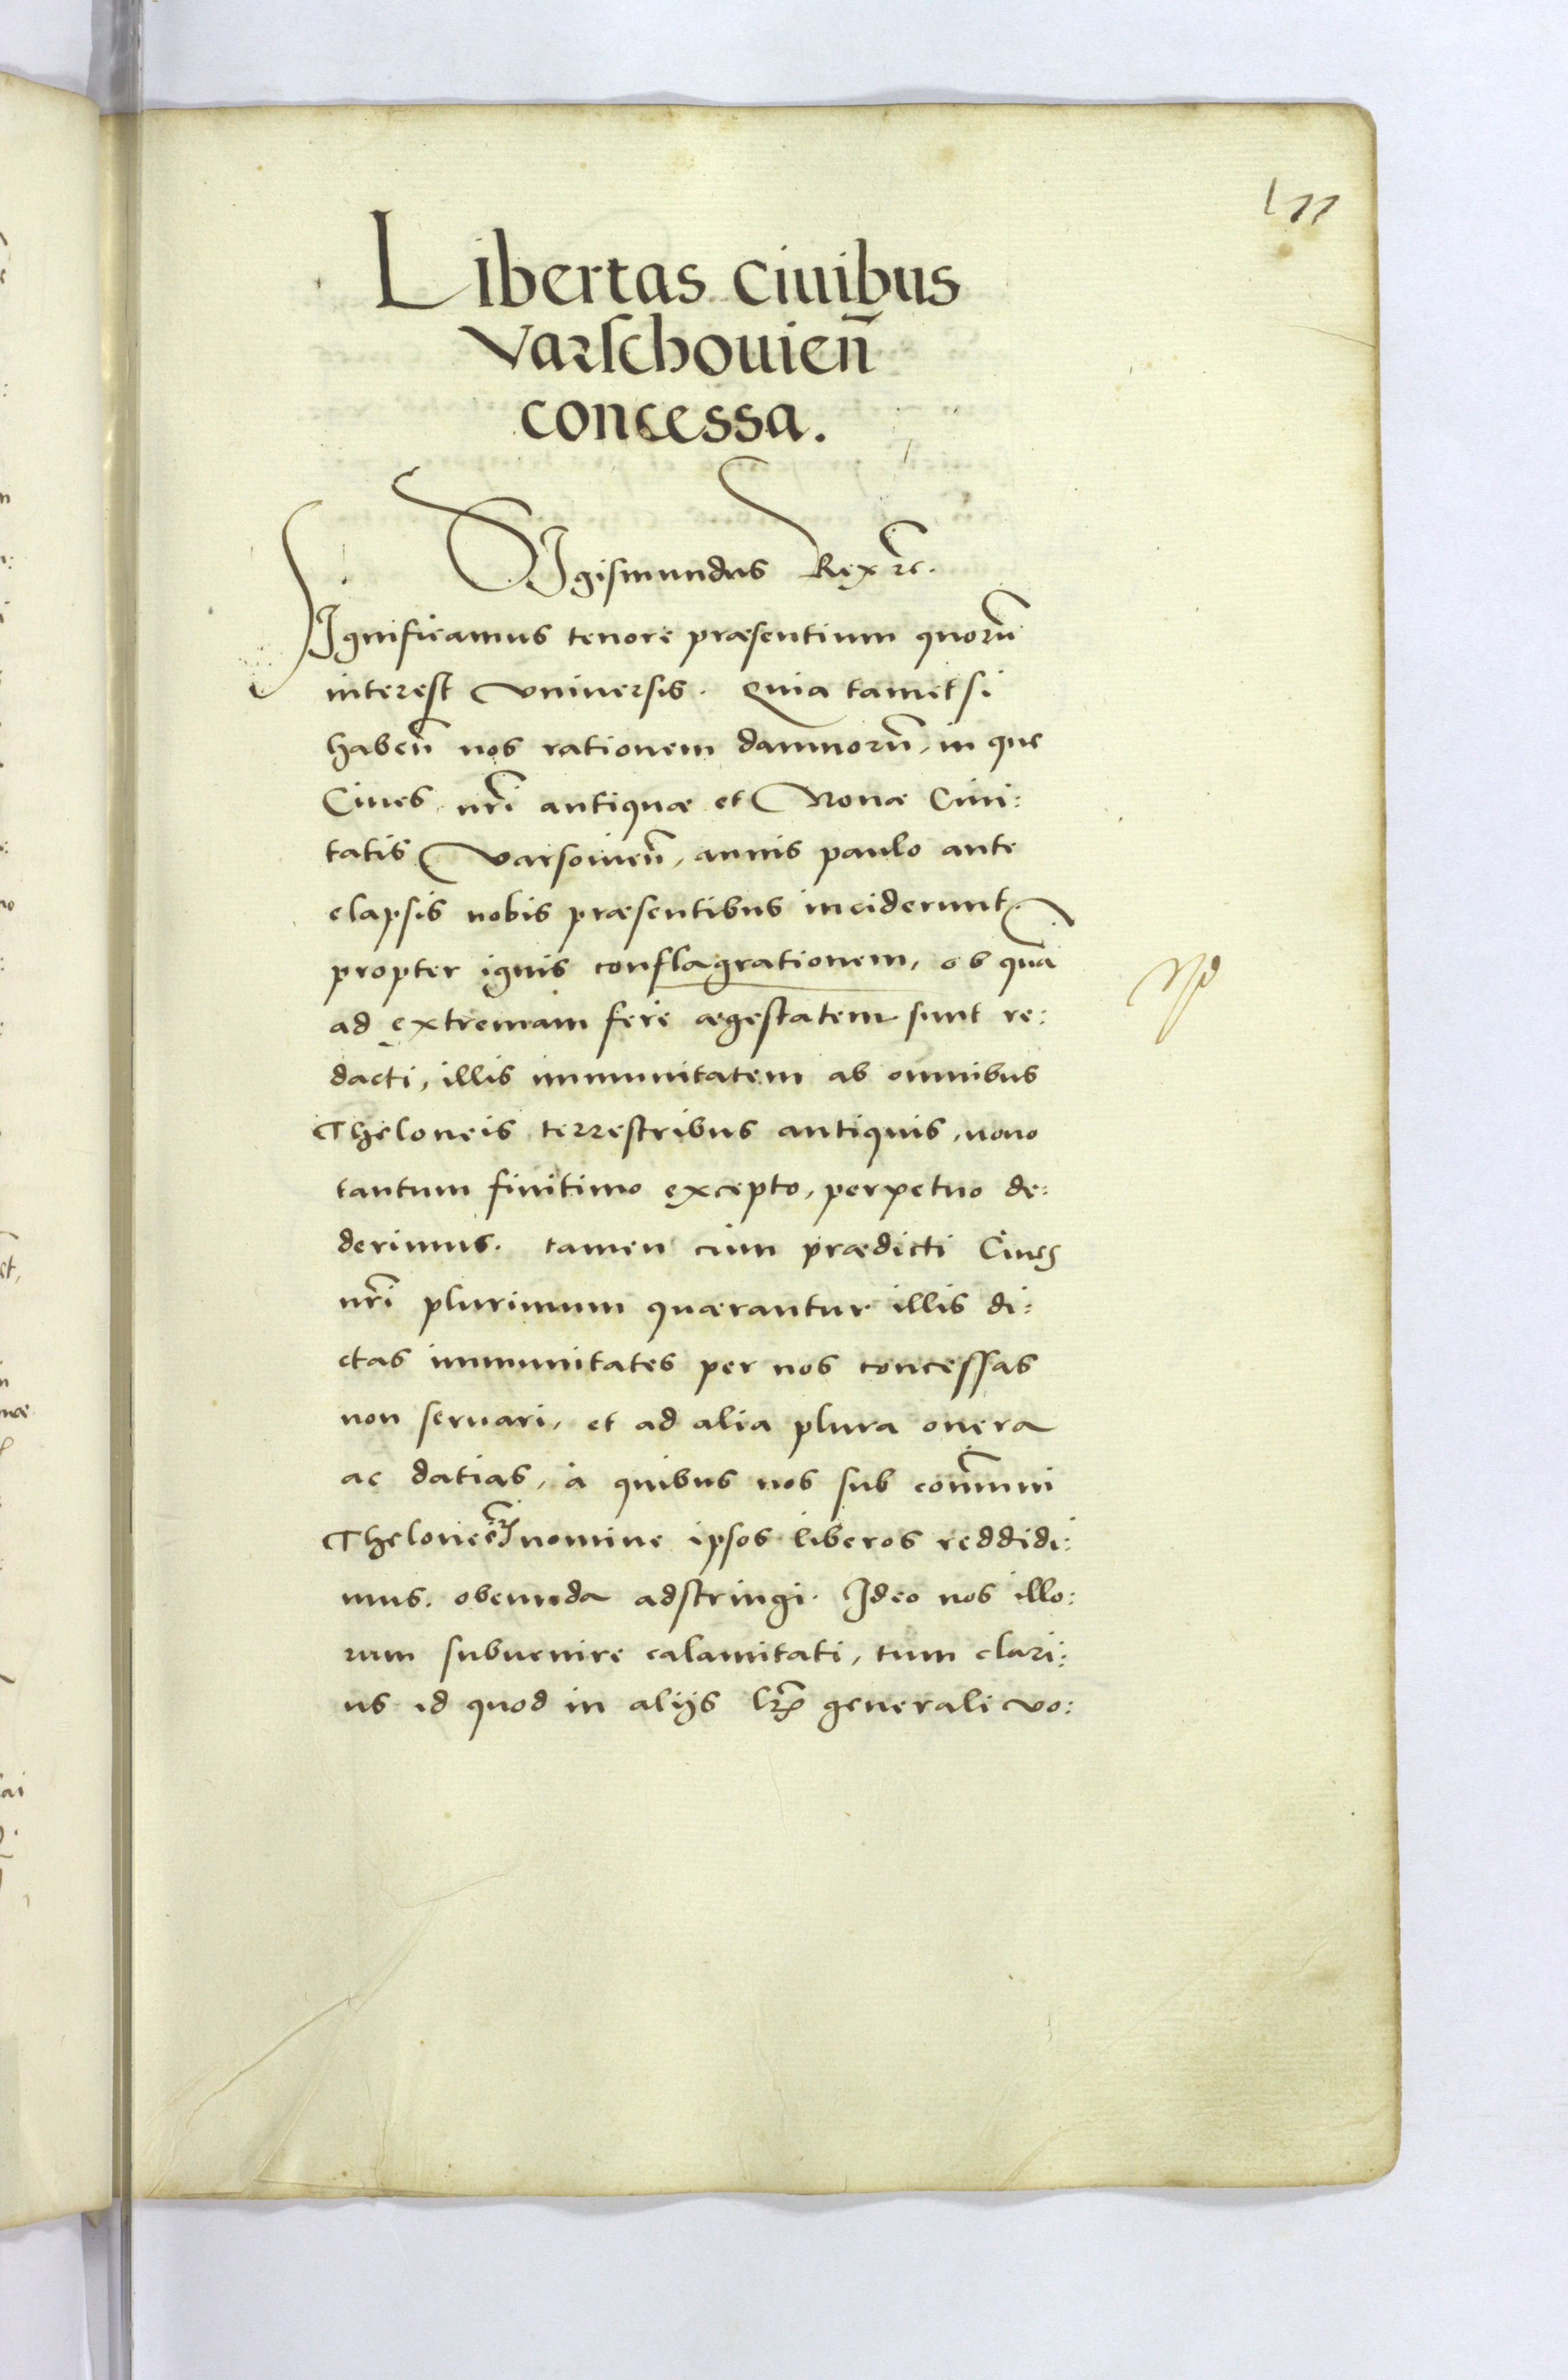 Libertas ciuibus
Varschouień
concessa.
Sigismundus Rex etc.
Significamus tenore præsentium quorũ
interest vniuersis. Quia tametsi
habeñ nos rationem damnorũ, in que
Ciues nr̃i antiquæ et Nouæ Ciui:
tatis Varsouieñ, annis paulo ante
elapsis nobis præsentibus inciderunt
propter ignis conflagrationem, ob quã
ad extremam fere ægestatem sunt re:
dacti, illis immunitatem ab omnibus
Theloneis terrestribus antiquis, nouo
tantum finitimo excepto, perpetuo de:
derimus. tamen cum prædicti Ciues
nr̃i plurimum quærantur illis di:
ctas immunitates per nos concessas
non seruari, et ad alia plura onera
ac datias, à quibus nos sub com̃uni
Theloneoꝝ nomine ipsos liberos reddidi:
mus. obeunda adstringi. Ideo nos illo:
rum subuenire calamitati, tum clari:
us id quod in alijs lr̃is generali vo: